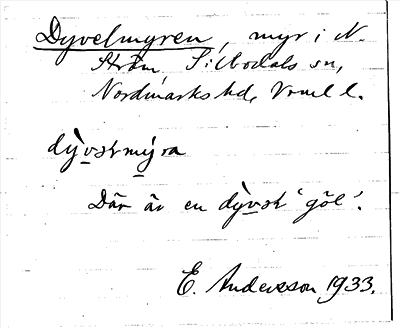 Dyvelmyren, myr i N.
Ström, Silbodals sn,
Nordmarks hd, Vrml l.
dy̠vstmy̠ra
Där är en dy̠vsk 'göl'.
E. Andersson 1933.